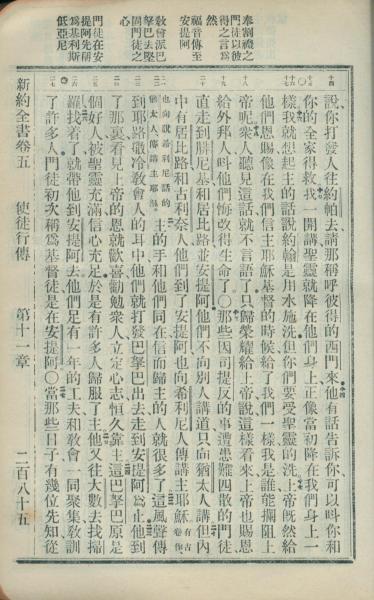 奉割禮之
門徒以彼
得之言爲
然
福音傳至
安提阿
教會派巴
拏巴去堅
固門徒之
心
門徒在安
提阿先稱
爲基利斯
低亞尼
十四
十五
十六
十七
十八
十九
二十
說你打發人往約帕去請那稱呼彼得的西門來他有話告訴你可以呌你和
你的全家得救我一開講聖靈就降在他們身上正像當初降在我們身上一
樣我就想起主的話說約翰是用水施洗但你們要受聖靈的洗上帝旣然給
他們恩賜像在我們信主耶穌基督的時候給了我們一樣我是誰能攔阻上
帝呢衆人聽見這話就不言語了只歸榮耀給上帝說這樣看來上帝也賜恩
給外邦人呌他們悔改得生命了〇那些因司提反的事遭患難四散的門徒
直走到腓尼基和居比路並安提阿他們不向別人講道只向猶太人講但內
中有居比路和古利奈人他們到了安提阿也向希利尼人傳講主耶穌
有古
卷作
也向說希利尼話的
猶太人傳講主耶穌
主的手和他們同在信而歸主的人就很多了這風聲傳
到耶路撒冷教會人的耳中他們就打發巴拏巴出去走到安提阿爲止他到
了那裏看見上帝的恩就歡喜勸勉衆人立定心志恒久靠主這巴拏巴原是
個好人被聖靈充滿信心充足於是有許多人歸服了主他又往大數去找掃
羅找着了就帶他到安提阿去他們足有一年的工夫和敎會一同聚集敎訓
了許多人門徒初次稱爲基督徒是在安提阿〇當那些日子有幾位先知從
新約全書卷五
使徒行傳
第十一章
二百八十五